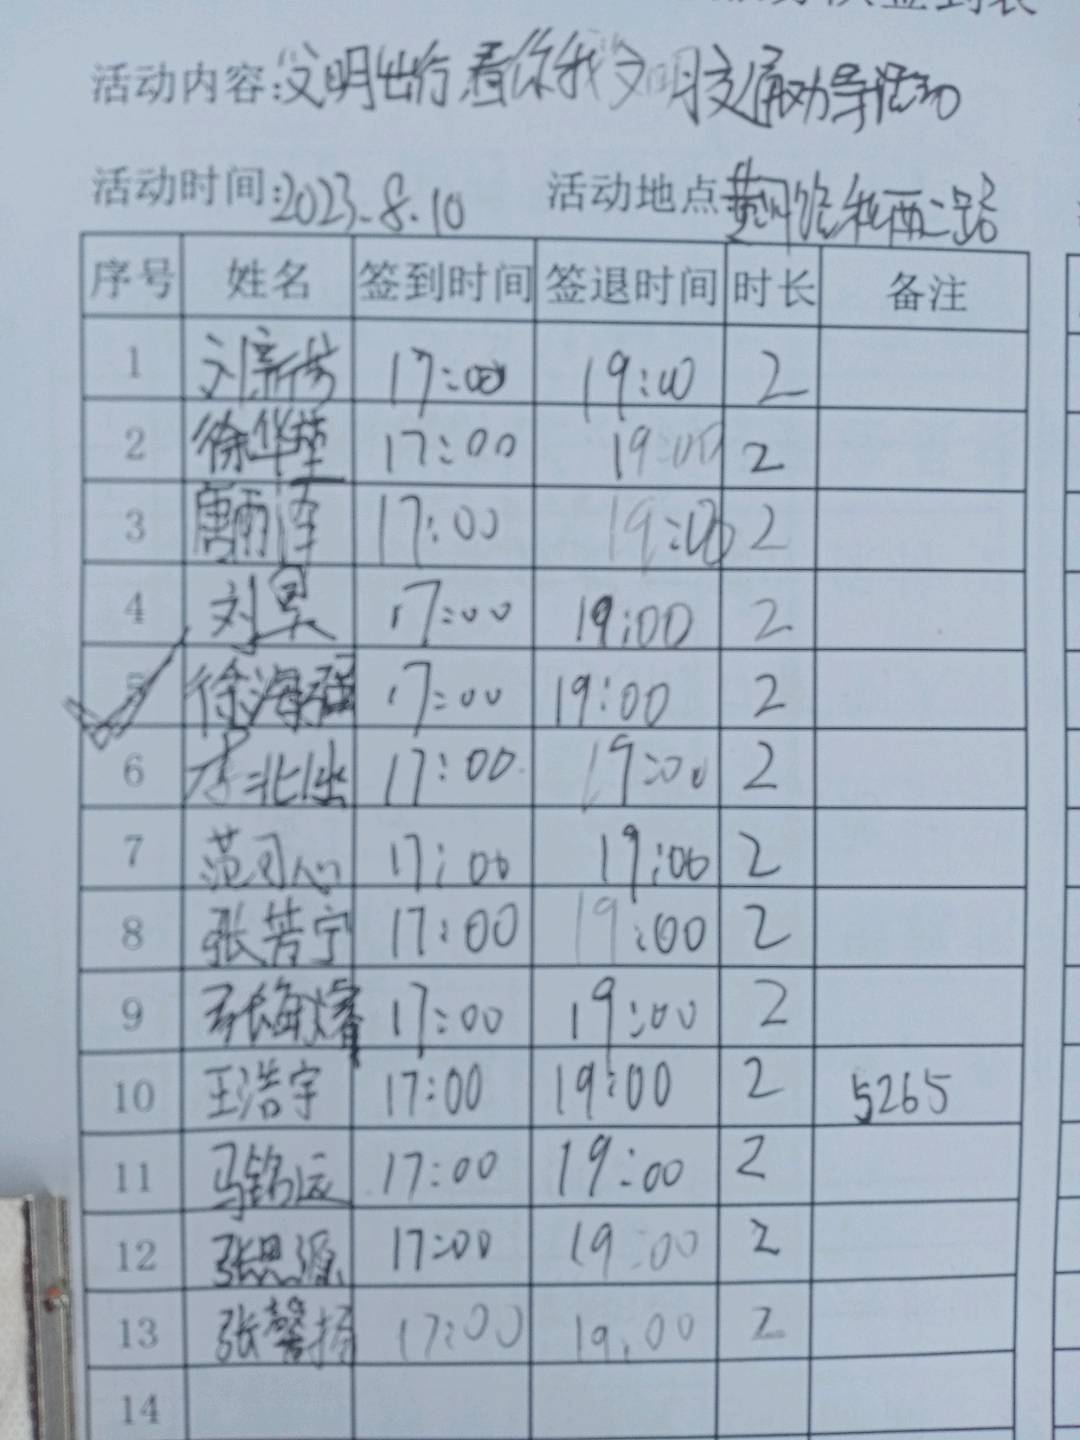 签到表
活动内容:文明出行看你我文明交通劝导活动
活动时间:2023.8.10 活动地点 黄河路和西二路
序号 姓名 签到时间 签退时间 时长 备注
1 17:00 19:00 2
2 17:00 19:00 2
3 唐雨泽 17:00 19:00 2
4 刘昊 17:00 19:00 2
5 徐海强 17:00 19:00 2
6 17:00 19:00 2
7 范可心 17:00 19:00 2
8 张芳宁 17:00 19:00 2
9 17:00 19:00 2
10 王浩宇 17:00 19:00 2 5265
11 马铭远 17:00 19:00 2
12 张思源 17:00 19:00 2
13 张馨扬 17:00 19:00 2
14